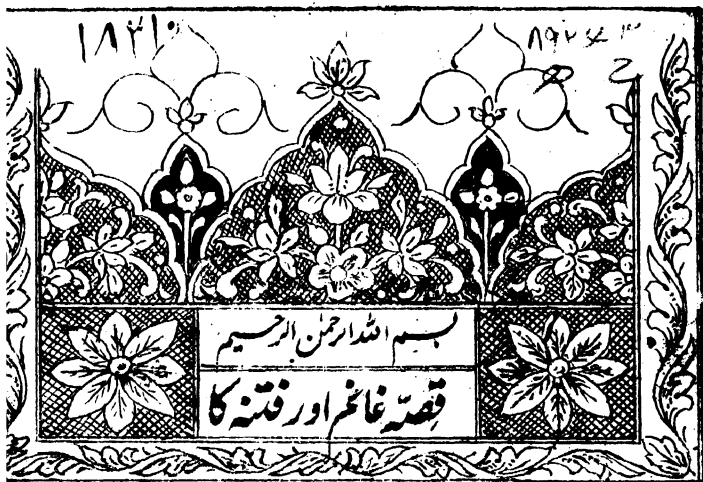 ۱۸۳۱۰
بسم اللہ الرحمٰن الرحیم
قصّہ غانم اور فتنہ کا